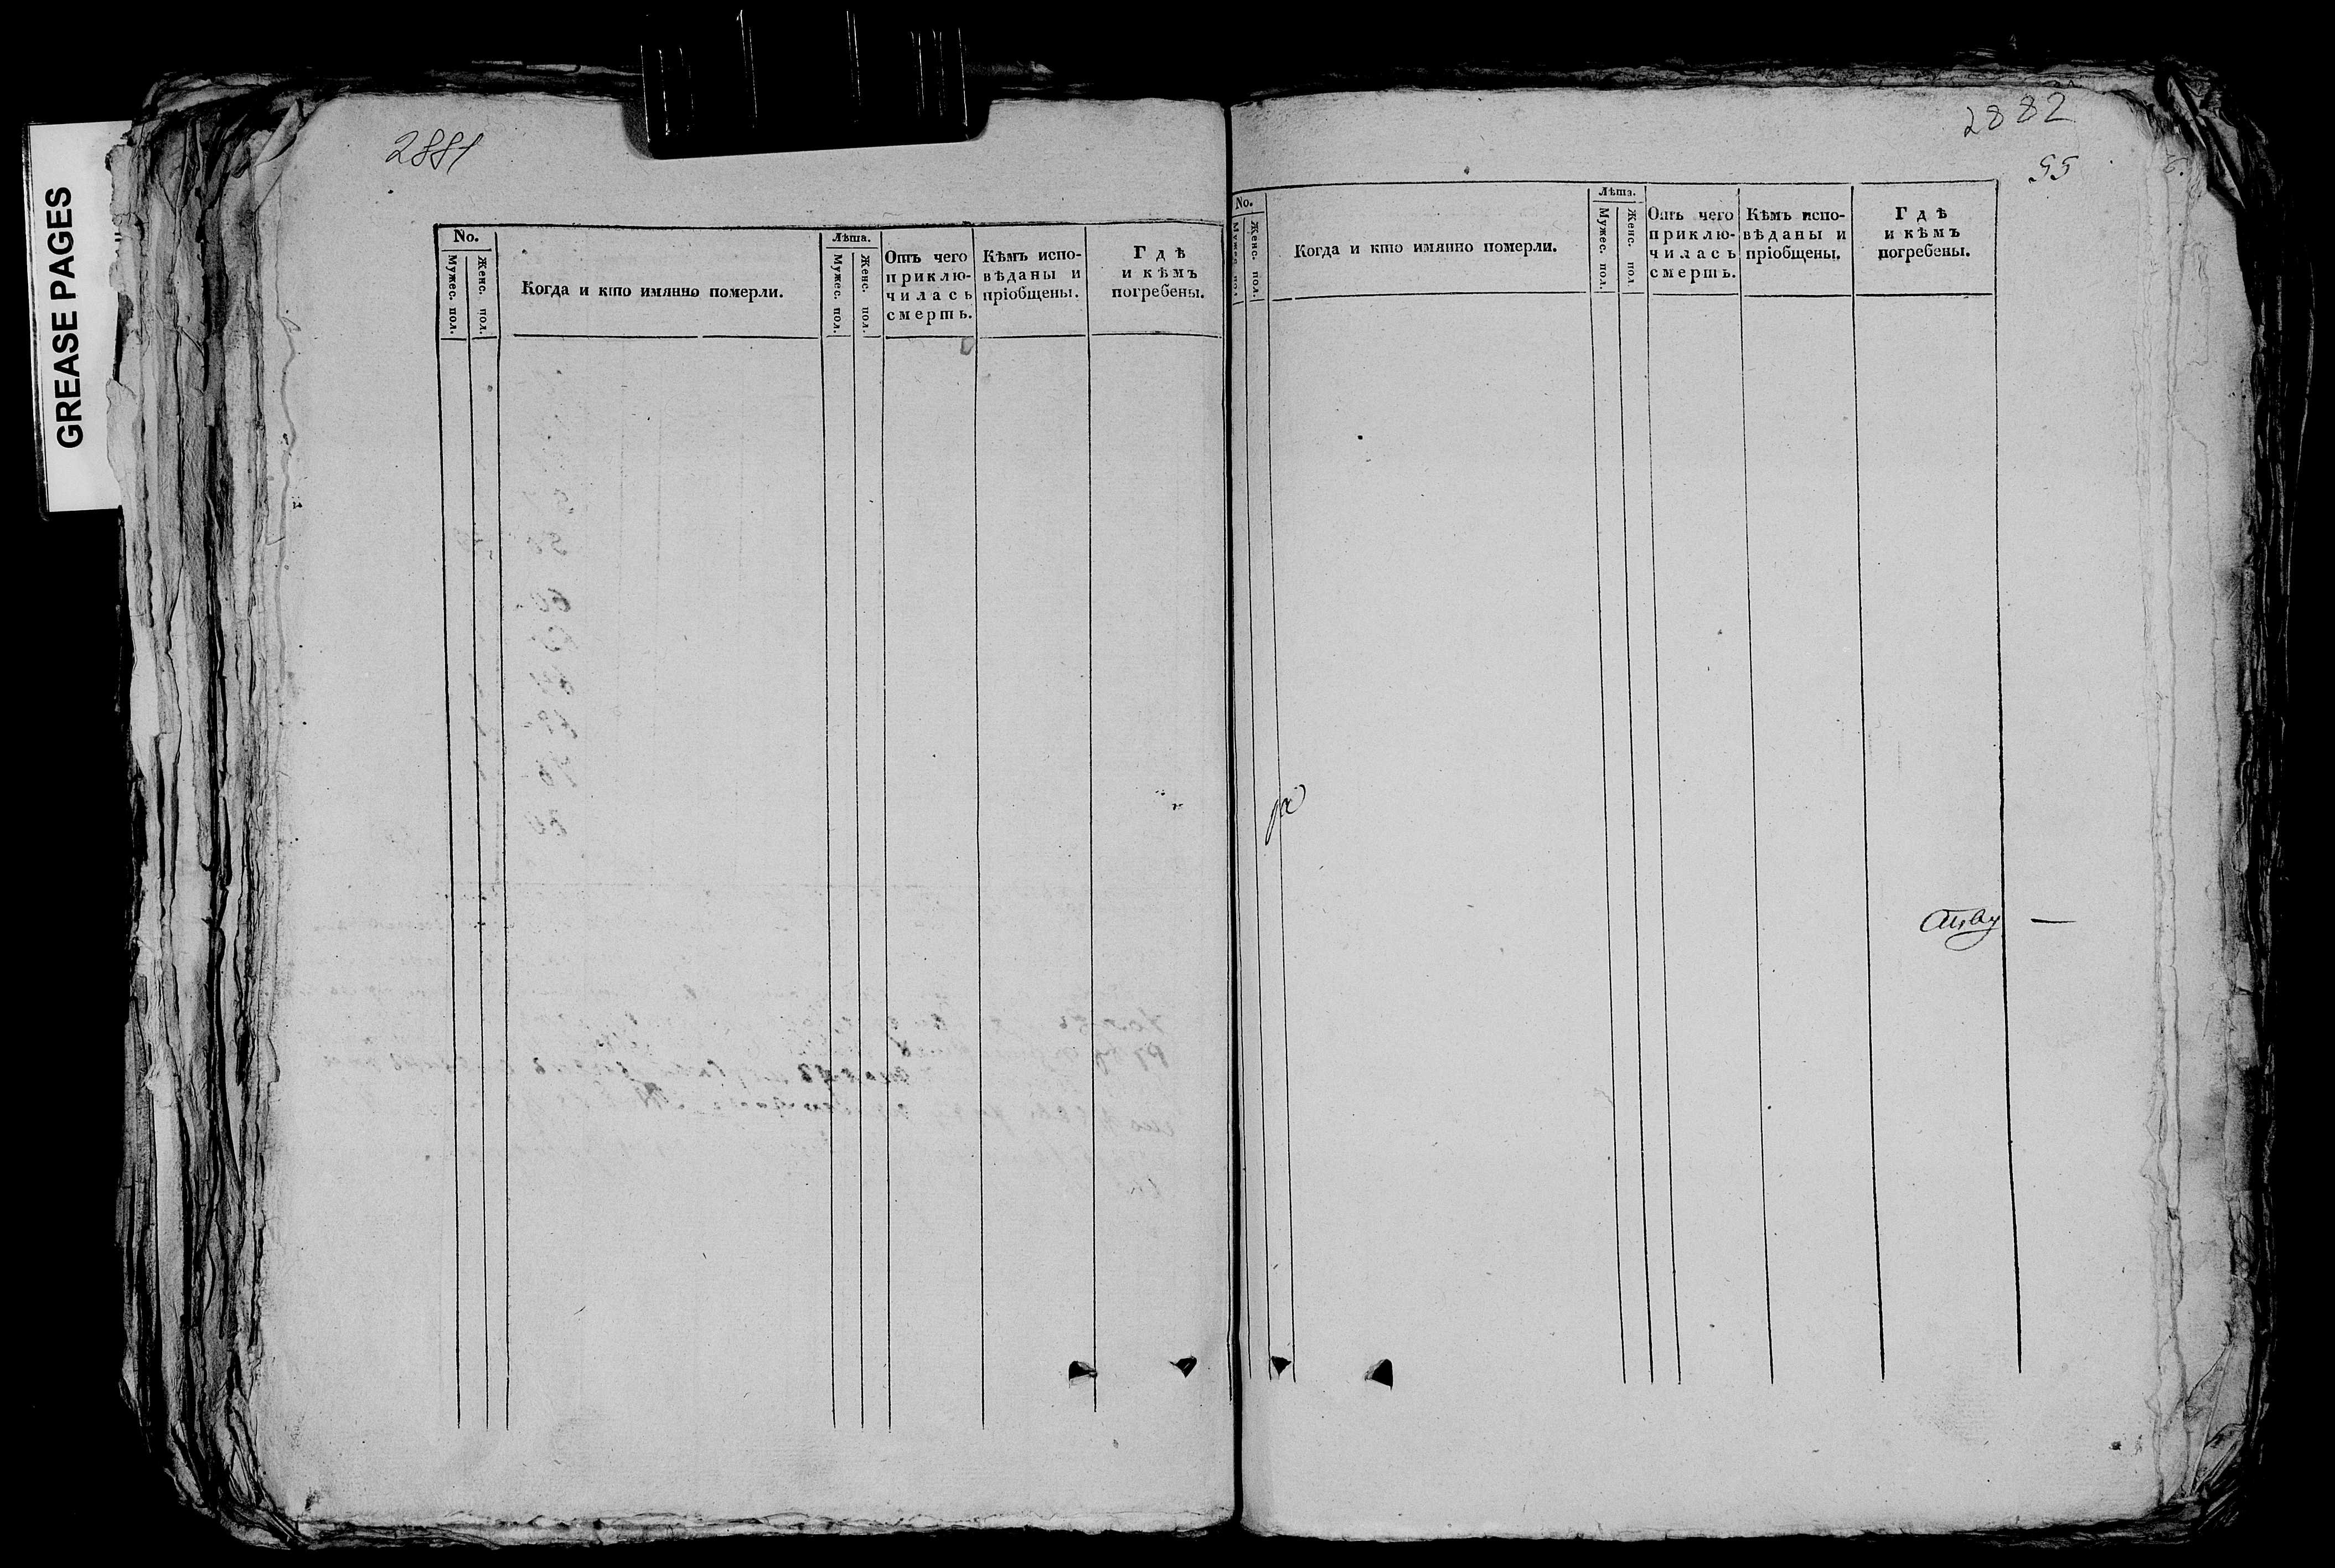 GREASE PAGES
2881
No.
Мужес. пол.
Женс. пол.
Когда и кто имянно померли.
Лѣта.
Мужес. пол.
Женс. пол.
Отъ чего
приклю-
чилась
смерть.
Кѣмъ испо-
вѣданы и
пріобщены.
Гдѣ
и кѣмъ
погребены.
2882
55
No.
Мужес. пол.
Женс. пол.
Когда и кто имянно померли.
Лѣта.
Мужес. пол.
Женс. пол
Отъ чего
приклю-
чилась
смерть.
Кѣмъ испо-
вѣданы и
пріобщены.
Гдѣ
и кѣмъ
погребены.